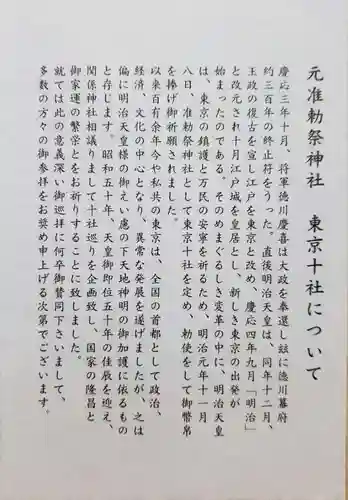 元准勅祭神社 東京十社について
慶応三年十月、将軍徳川慶喜は大政を奉還し玆に徳川幕府
約三百年の終止符をうった。直後明治天皇は、同年十二月、
王政の復古を宣し江戸を東京と改め、慶応四年九月「明治」
と改元され十月江戸城を皇居とし、新しき東京の出発が
始まったのである。そのめまぐるしき変革の中に、明治天皇
は、東京の鎮護と万民の安寧を祈るため、明治元年十一月
八日、准勅祭神社として東京十社を定め、勅使をして御幣帛
を捧げ御祈願されました。
以来百有余年今や私共の東京は、全国の首都として政治、
経済、文化の中心となり、異常な発展を遂げましたが、之は
偏に明治天皇様の御えい慮の下天地神明の御加護に依るもの
と存じます。昭和五十年、天皇御即位五十年の佳辰を迎え、
関係神社相議りまして十社巡りを企画致し、国家の隆昌と
御家運の繁栄とをお祈りすることに致しました。
就ては此の意義深い御巡拝に何卒御賛同下さいまして、
多数の方々の御参拝をお奨め申上げる次第でございます。